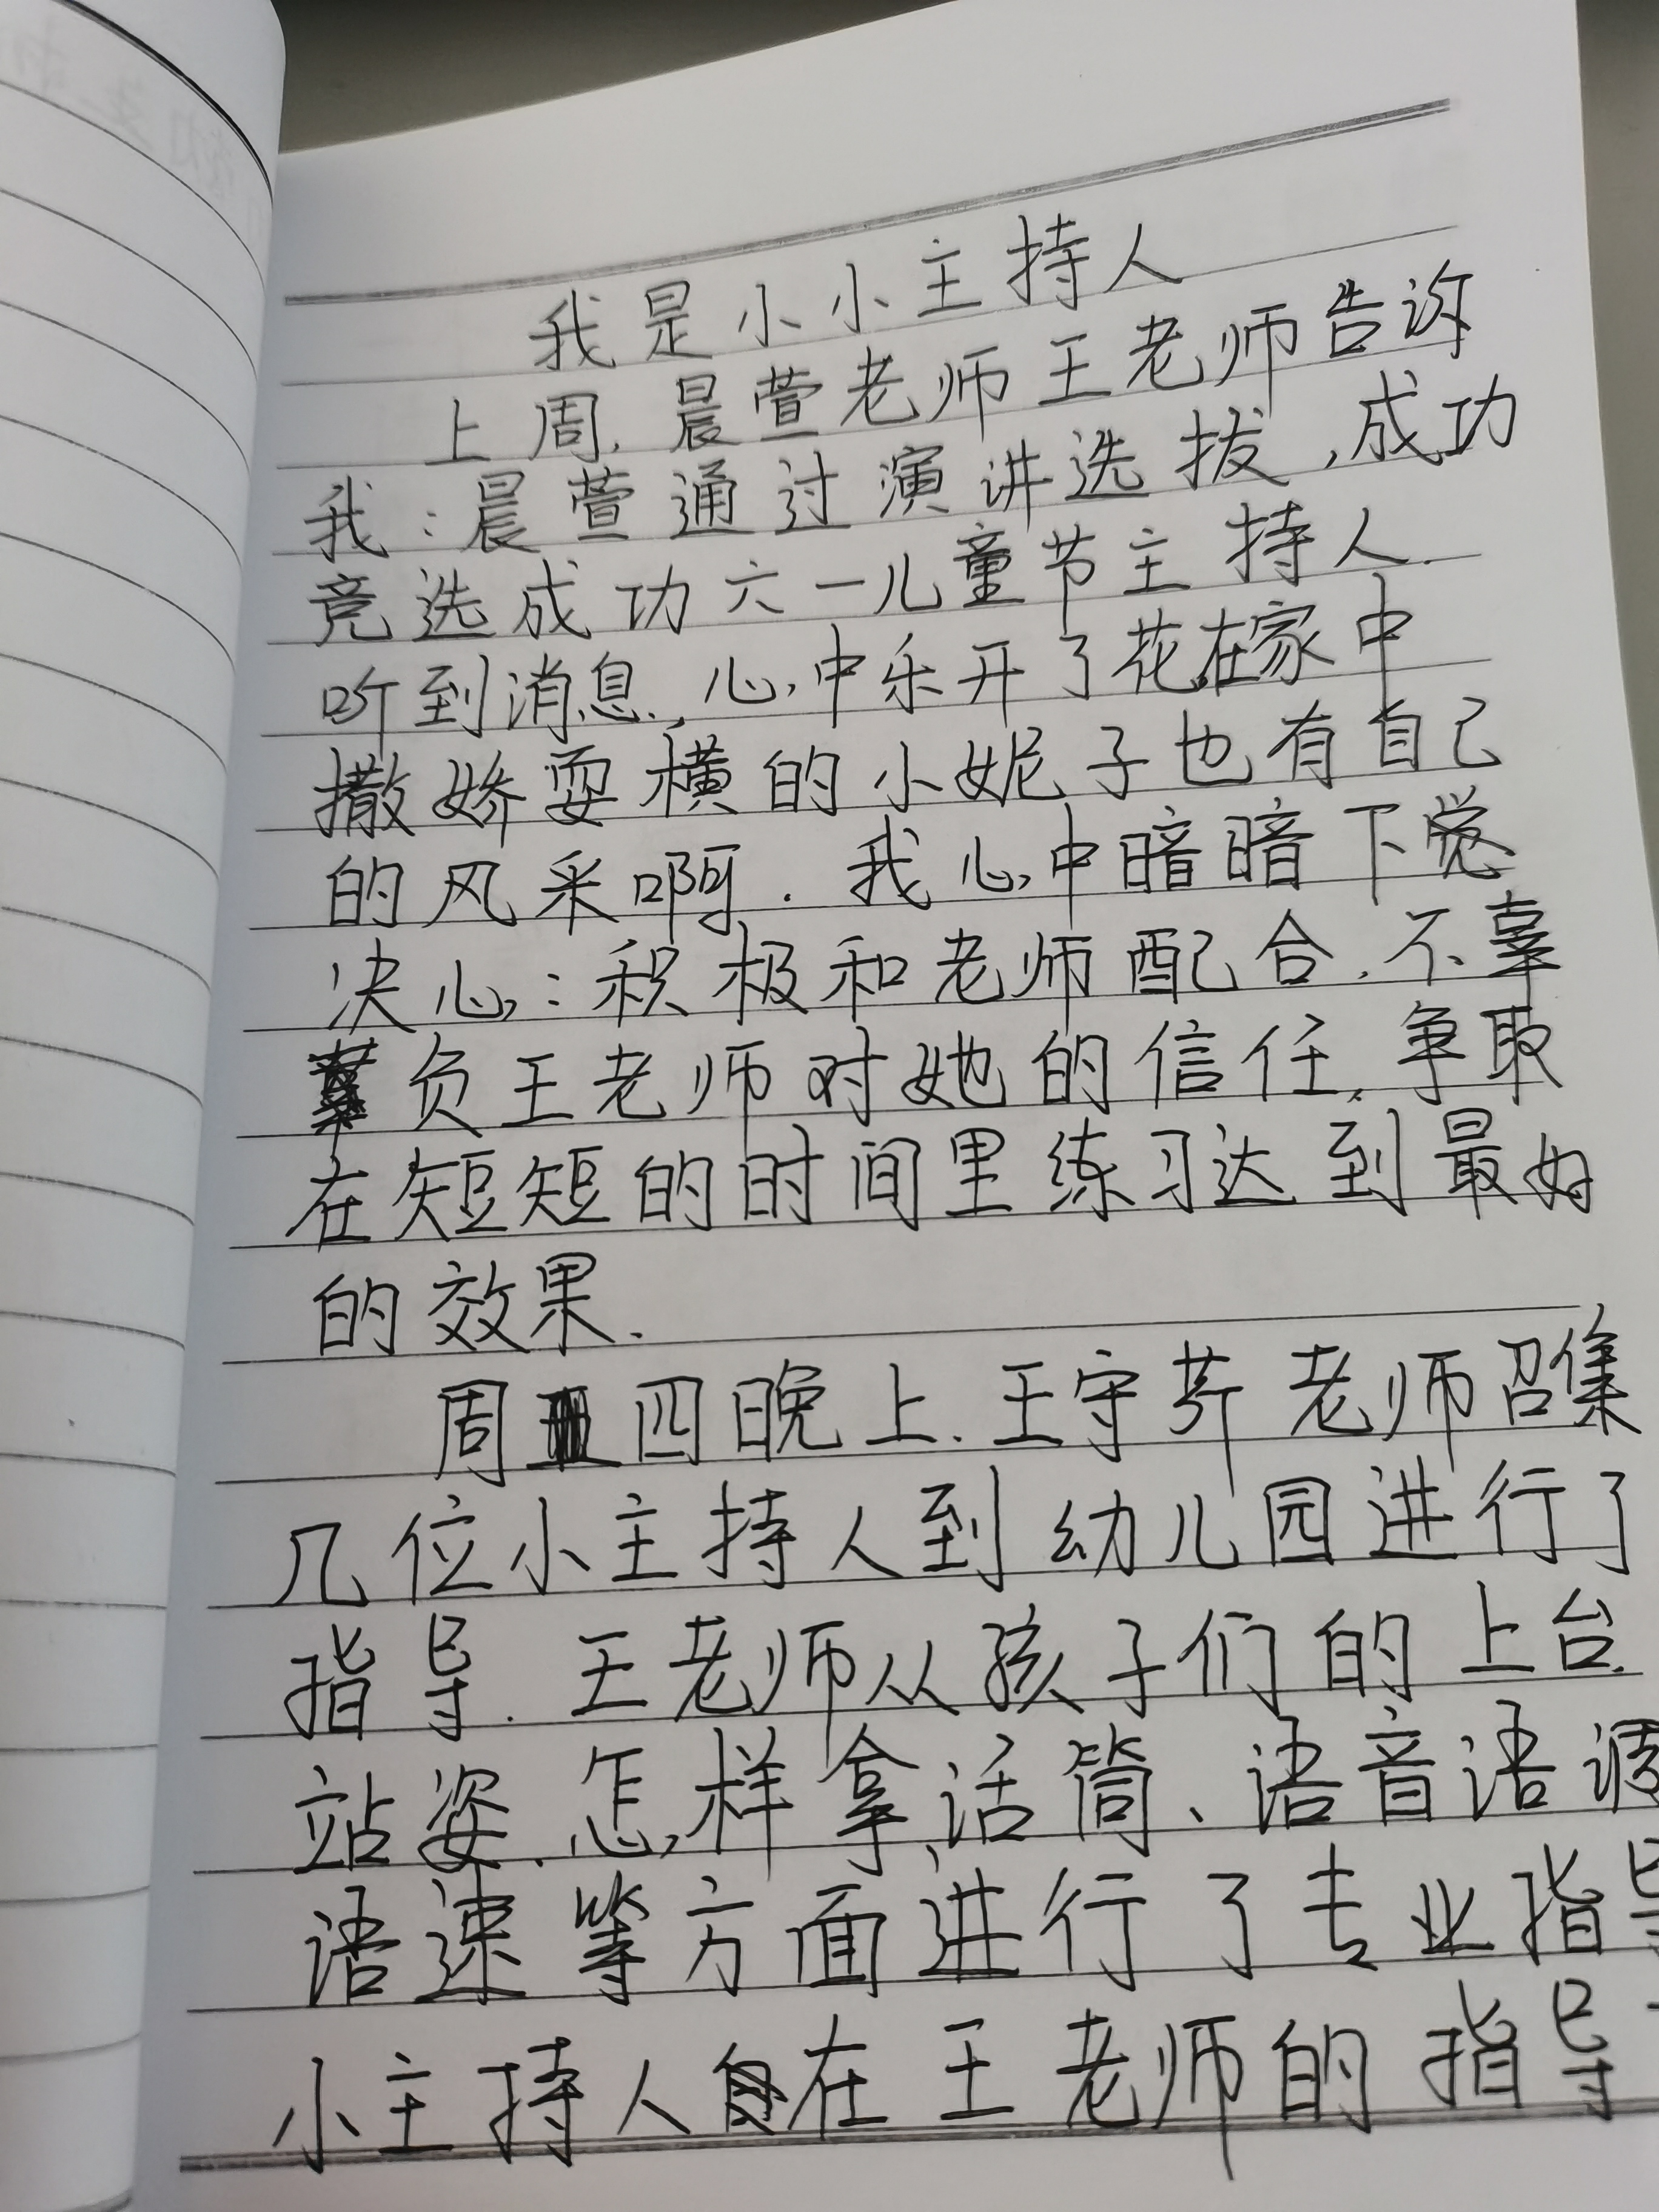 我是小小主持人
上周.晨萱老师王老师告诉
我:晨萱通过演讲选拔,成功
竞选成功六一儿童节主持人.
听到消息.,心中乐开了花.在家中
撒娇耍横的小妮子也有自己
的风采啊.我心中暗暗下
决心:积极和老师配合.不辜
负王老师对她的信任.争取
在短短的时间里练习达到最好
的效果.
周四晚上.王守芹老师召集
几位小主持人到幼儿园进行了
指导.王老师从孩子们的上台.
站姿.怎样拿话筒、语音语调
语速等方面进行了专业指导
小主持人在王老师的指导